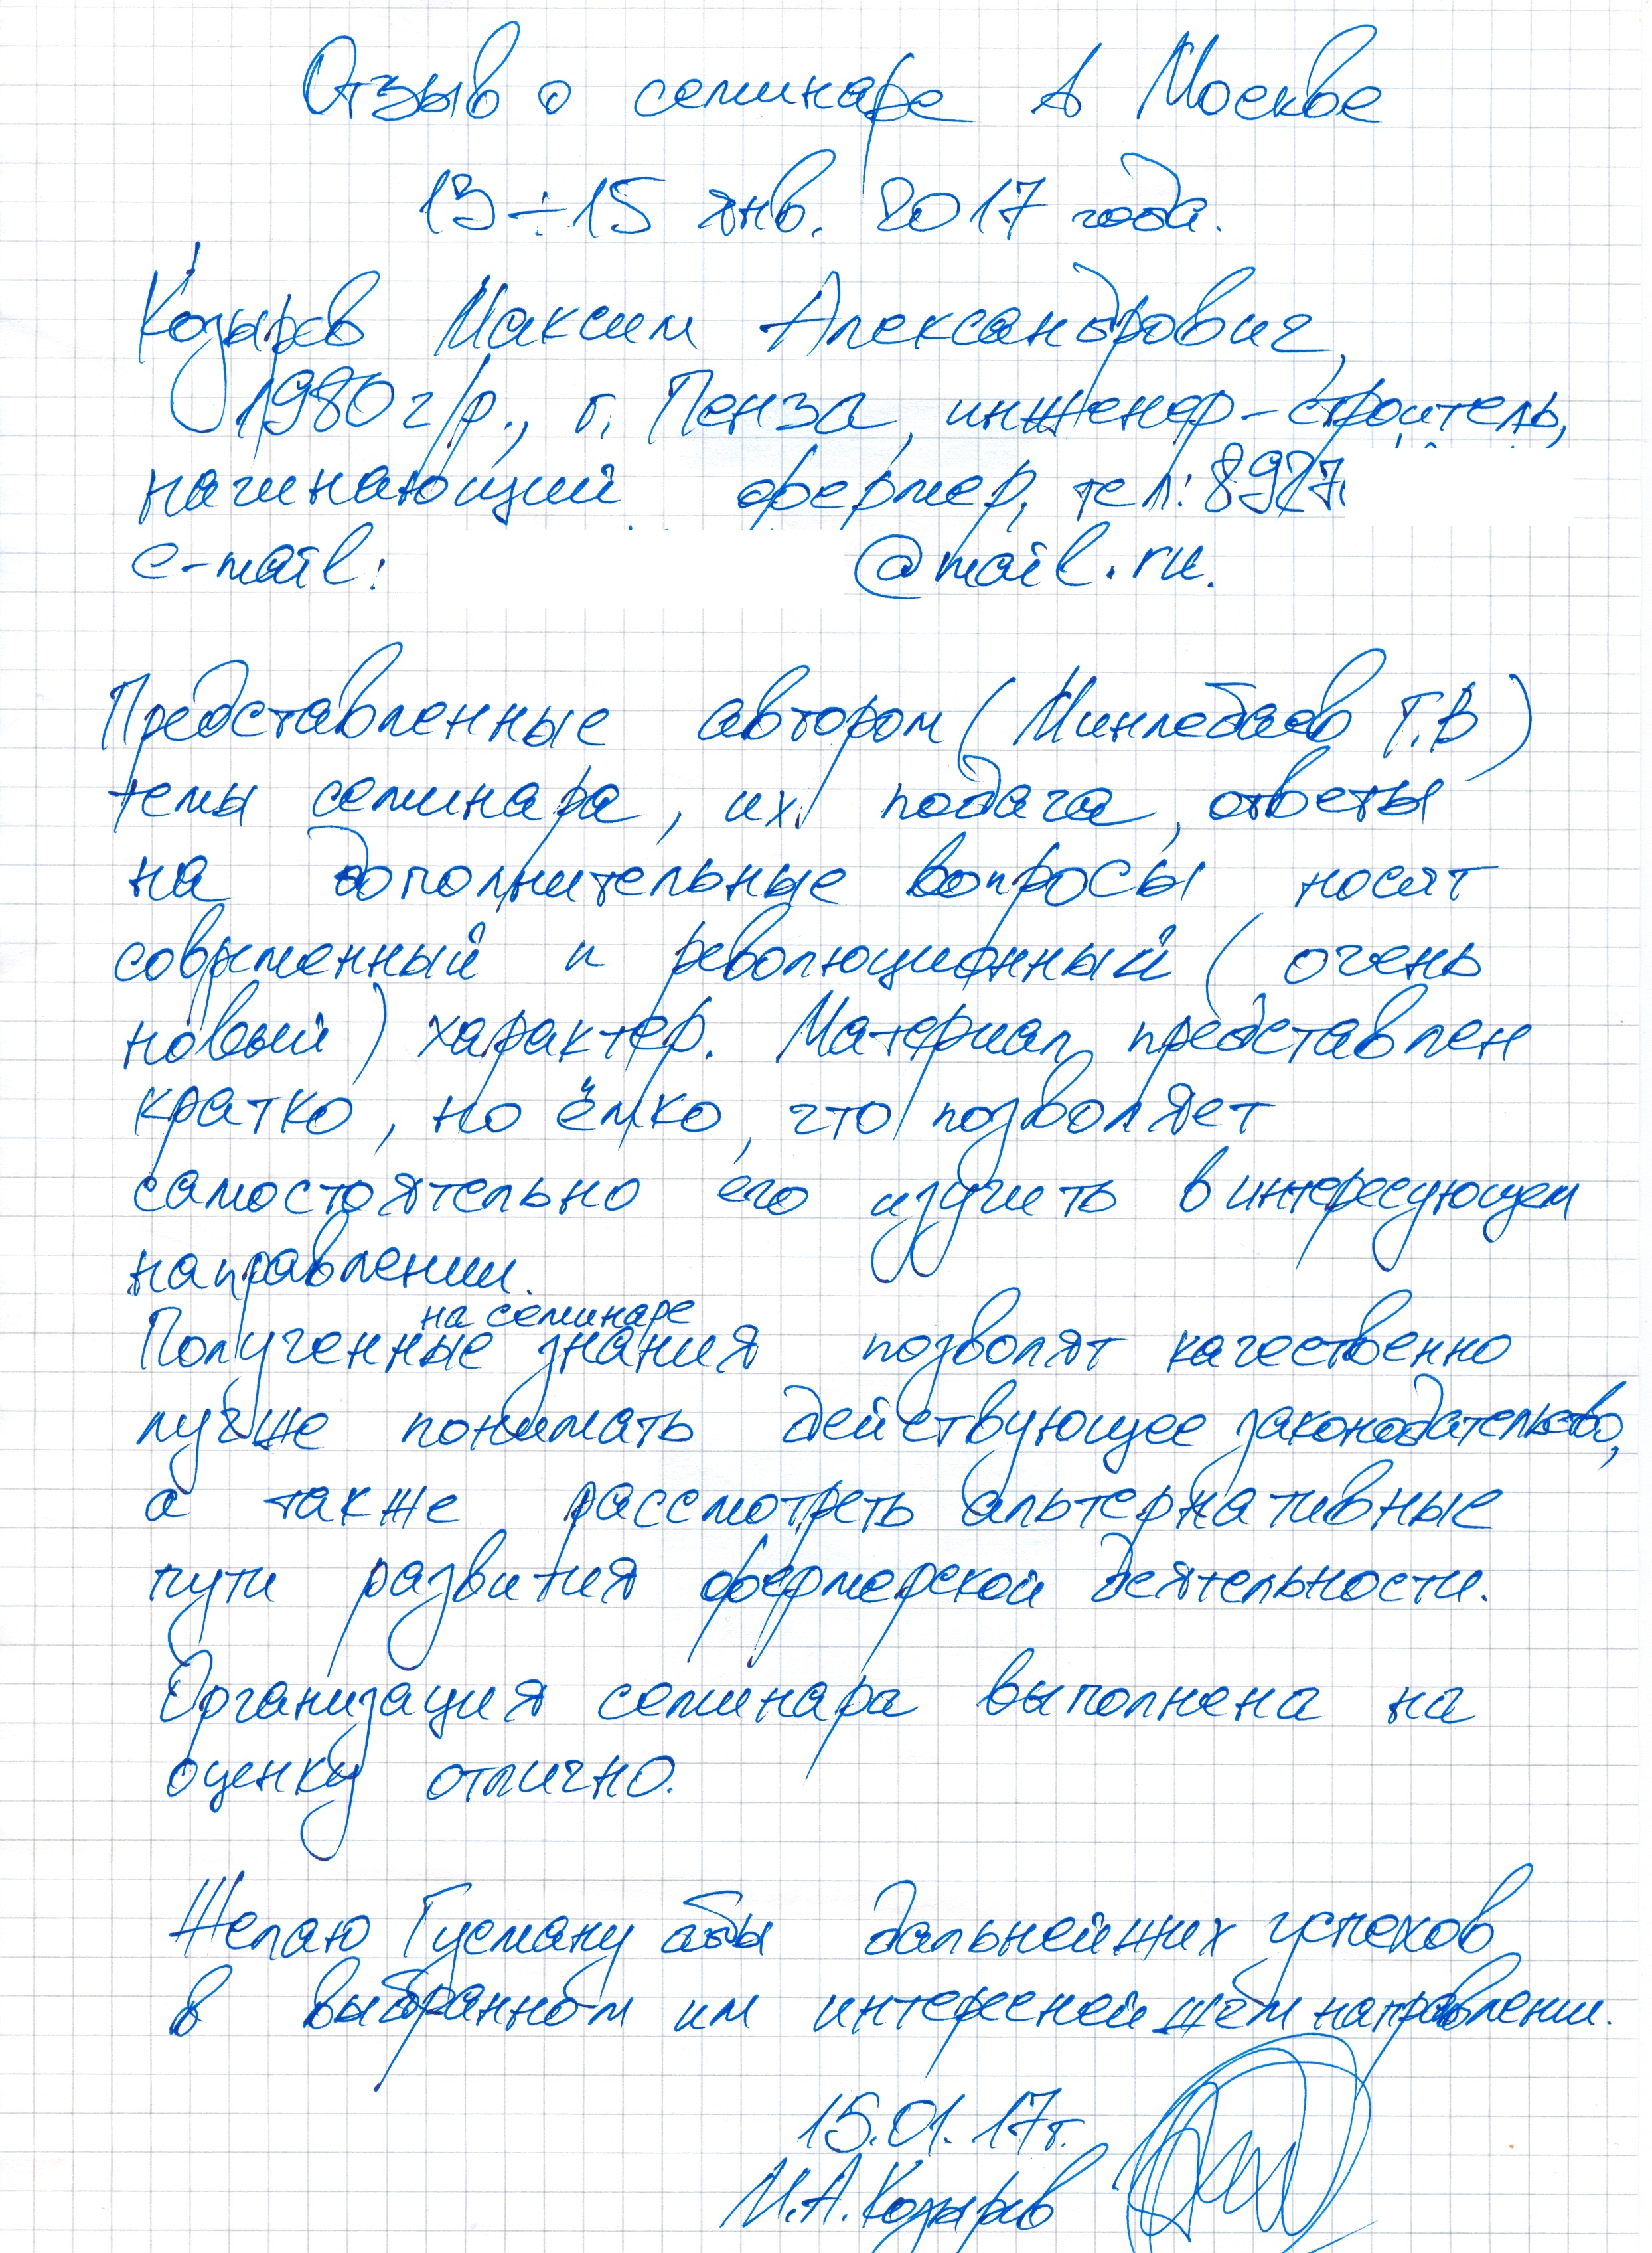 Отзыв о семинаре в Москве
13÷15 янв. 2017 года.
Козырев Максим Александрович,
1980 г/р., г. Пенза, инженер-строитель,
начинающий фермер, тел: 8927
e-mail: @mail.ru.
Представленные автором (Минлебаев Г.В)
темы семинара, их подача, ответы
на дополнительные вопросы носят
современный и революционный (очень
новый) характер. Материал представлен
кратко, но ёмко, что позволяет
самостоятельно его изучить в интересующем
направлении.
на семинаре
Полученные знания позволят качественно
лучше понимать действующее законодательство,
а также рассмотреть альтернативные
пути развития фермерской деятельности.
Организация семинара выполнена на
оценку отлично.
Желаю Гусману абы дальнейших успехов
в выбранном им интереснейшем направлении.
15.01.17г.
М.А.Козырев